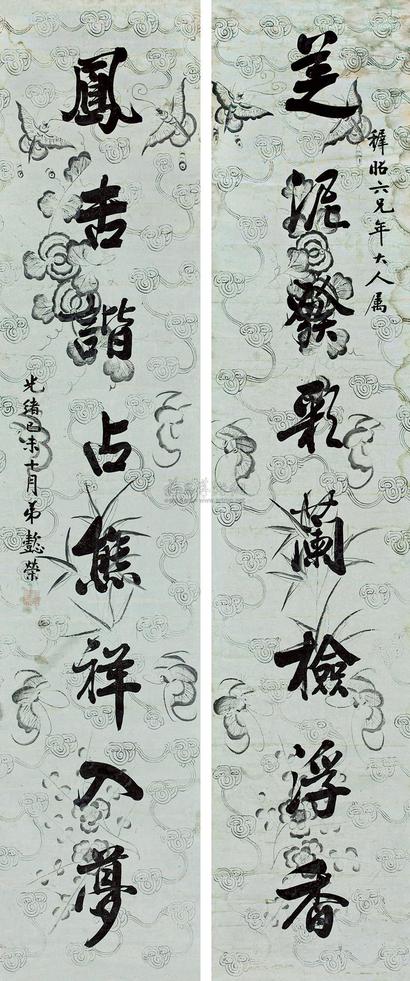 芝泥發彩蘭檢浮香
稺昭六兄年大人属
鳳吉諧占熊祥入夢
光緒乙未十月弟懿榮